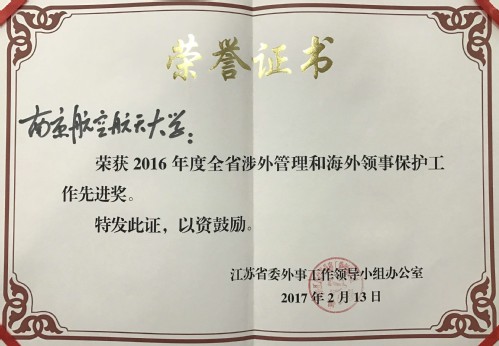 荣誉证书
南京航空航天大学：
荣获 2016 年度全省涉外管理和海外领事保护工
作先进奖。
特发此证，以资鼓励。
江苏省委外事工作领导小组办公室
2017 年 2 月 13 日